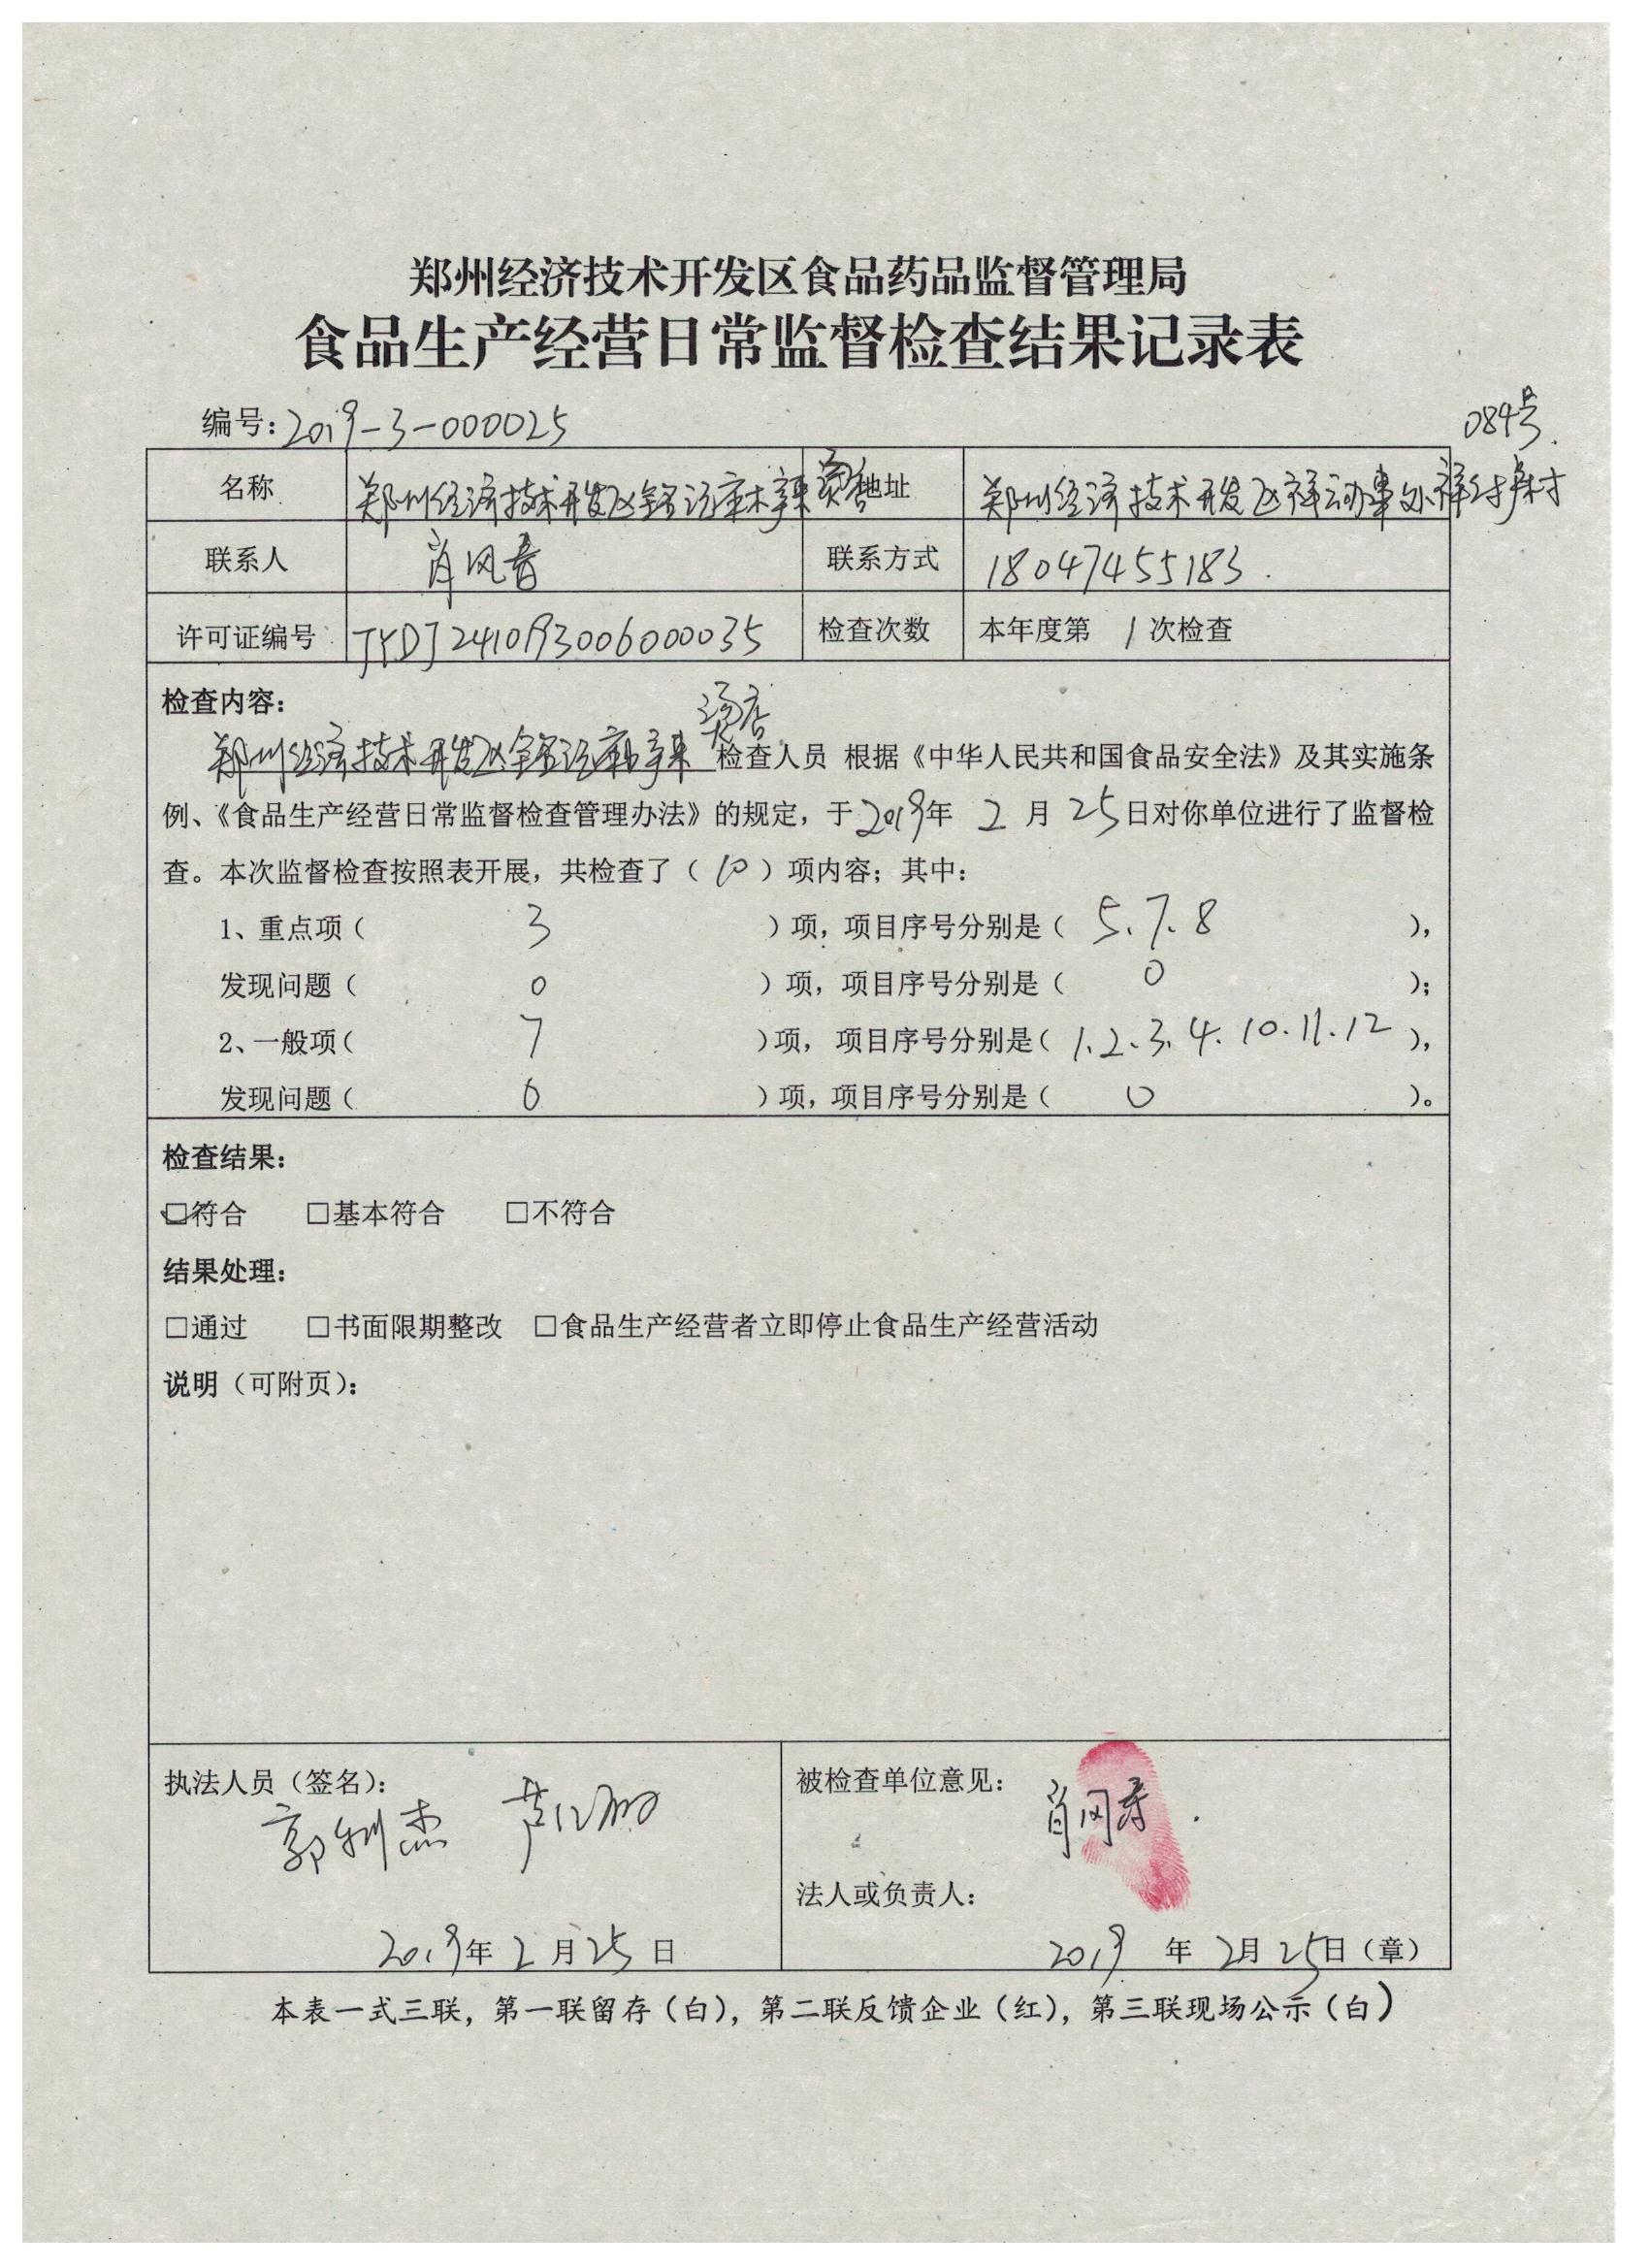 郑州经济技术开发区食品药品监督管理局
食品生产经营日常监督检查结果记录表
编号：2019-3-000025
084号
名称 郑州经济技术开发区 麻辣烫店 地址 郑州经济技术开发区祥云办事处
联系人 肖凤 联系方式 18047455183
许可证编号 JYDJ2410193006000035 检查次数 本年度第 1 次检查
检查内容：
烫店
郑州经济技术开发区 麻辣 检查人员 根据《中华人民共和国食品安全法》及其实施条
例、《食品生产经营日常监督检查管理办法》的规定，于2019年 2 月 25日对你单位进行了监督检
查。本次监督检查按照表开展，共检查了（ 10 ）项内容；其中：
1、重点项（ 3 ）项，项目序号分别是（ 5、7、8 ），
发现问题（ 0 ）项，项目序号分别是（ 0 ）；
2、一般项（ 7 ）项，项目序号分别是（ 1、2、3、4、10、11、12 ），
发现问题（ 0 ）项，项目序号分别是（ 0 ）。
检查结果：
☑符合 □基本符合 □不符合
结果处理：
□通过 □书面限期整改 □食品生产经营者立即停止食品生产经营活动
说明（可附页）：
执法人员（签名）： 被检查单位意见：
法人或负责人：
2019年 2 月 25 日 2019 年 2月 25日（章）
本表一式三联，第一联留存（白），第二联反馈企业（红），第三联现场公示（白）